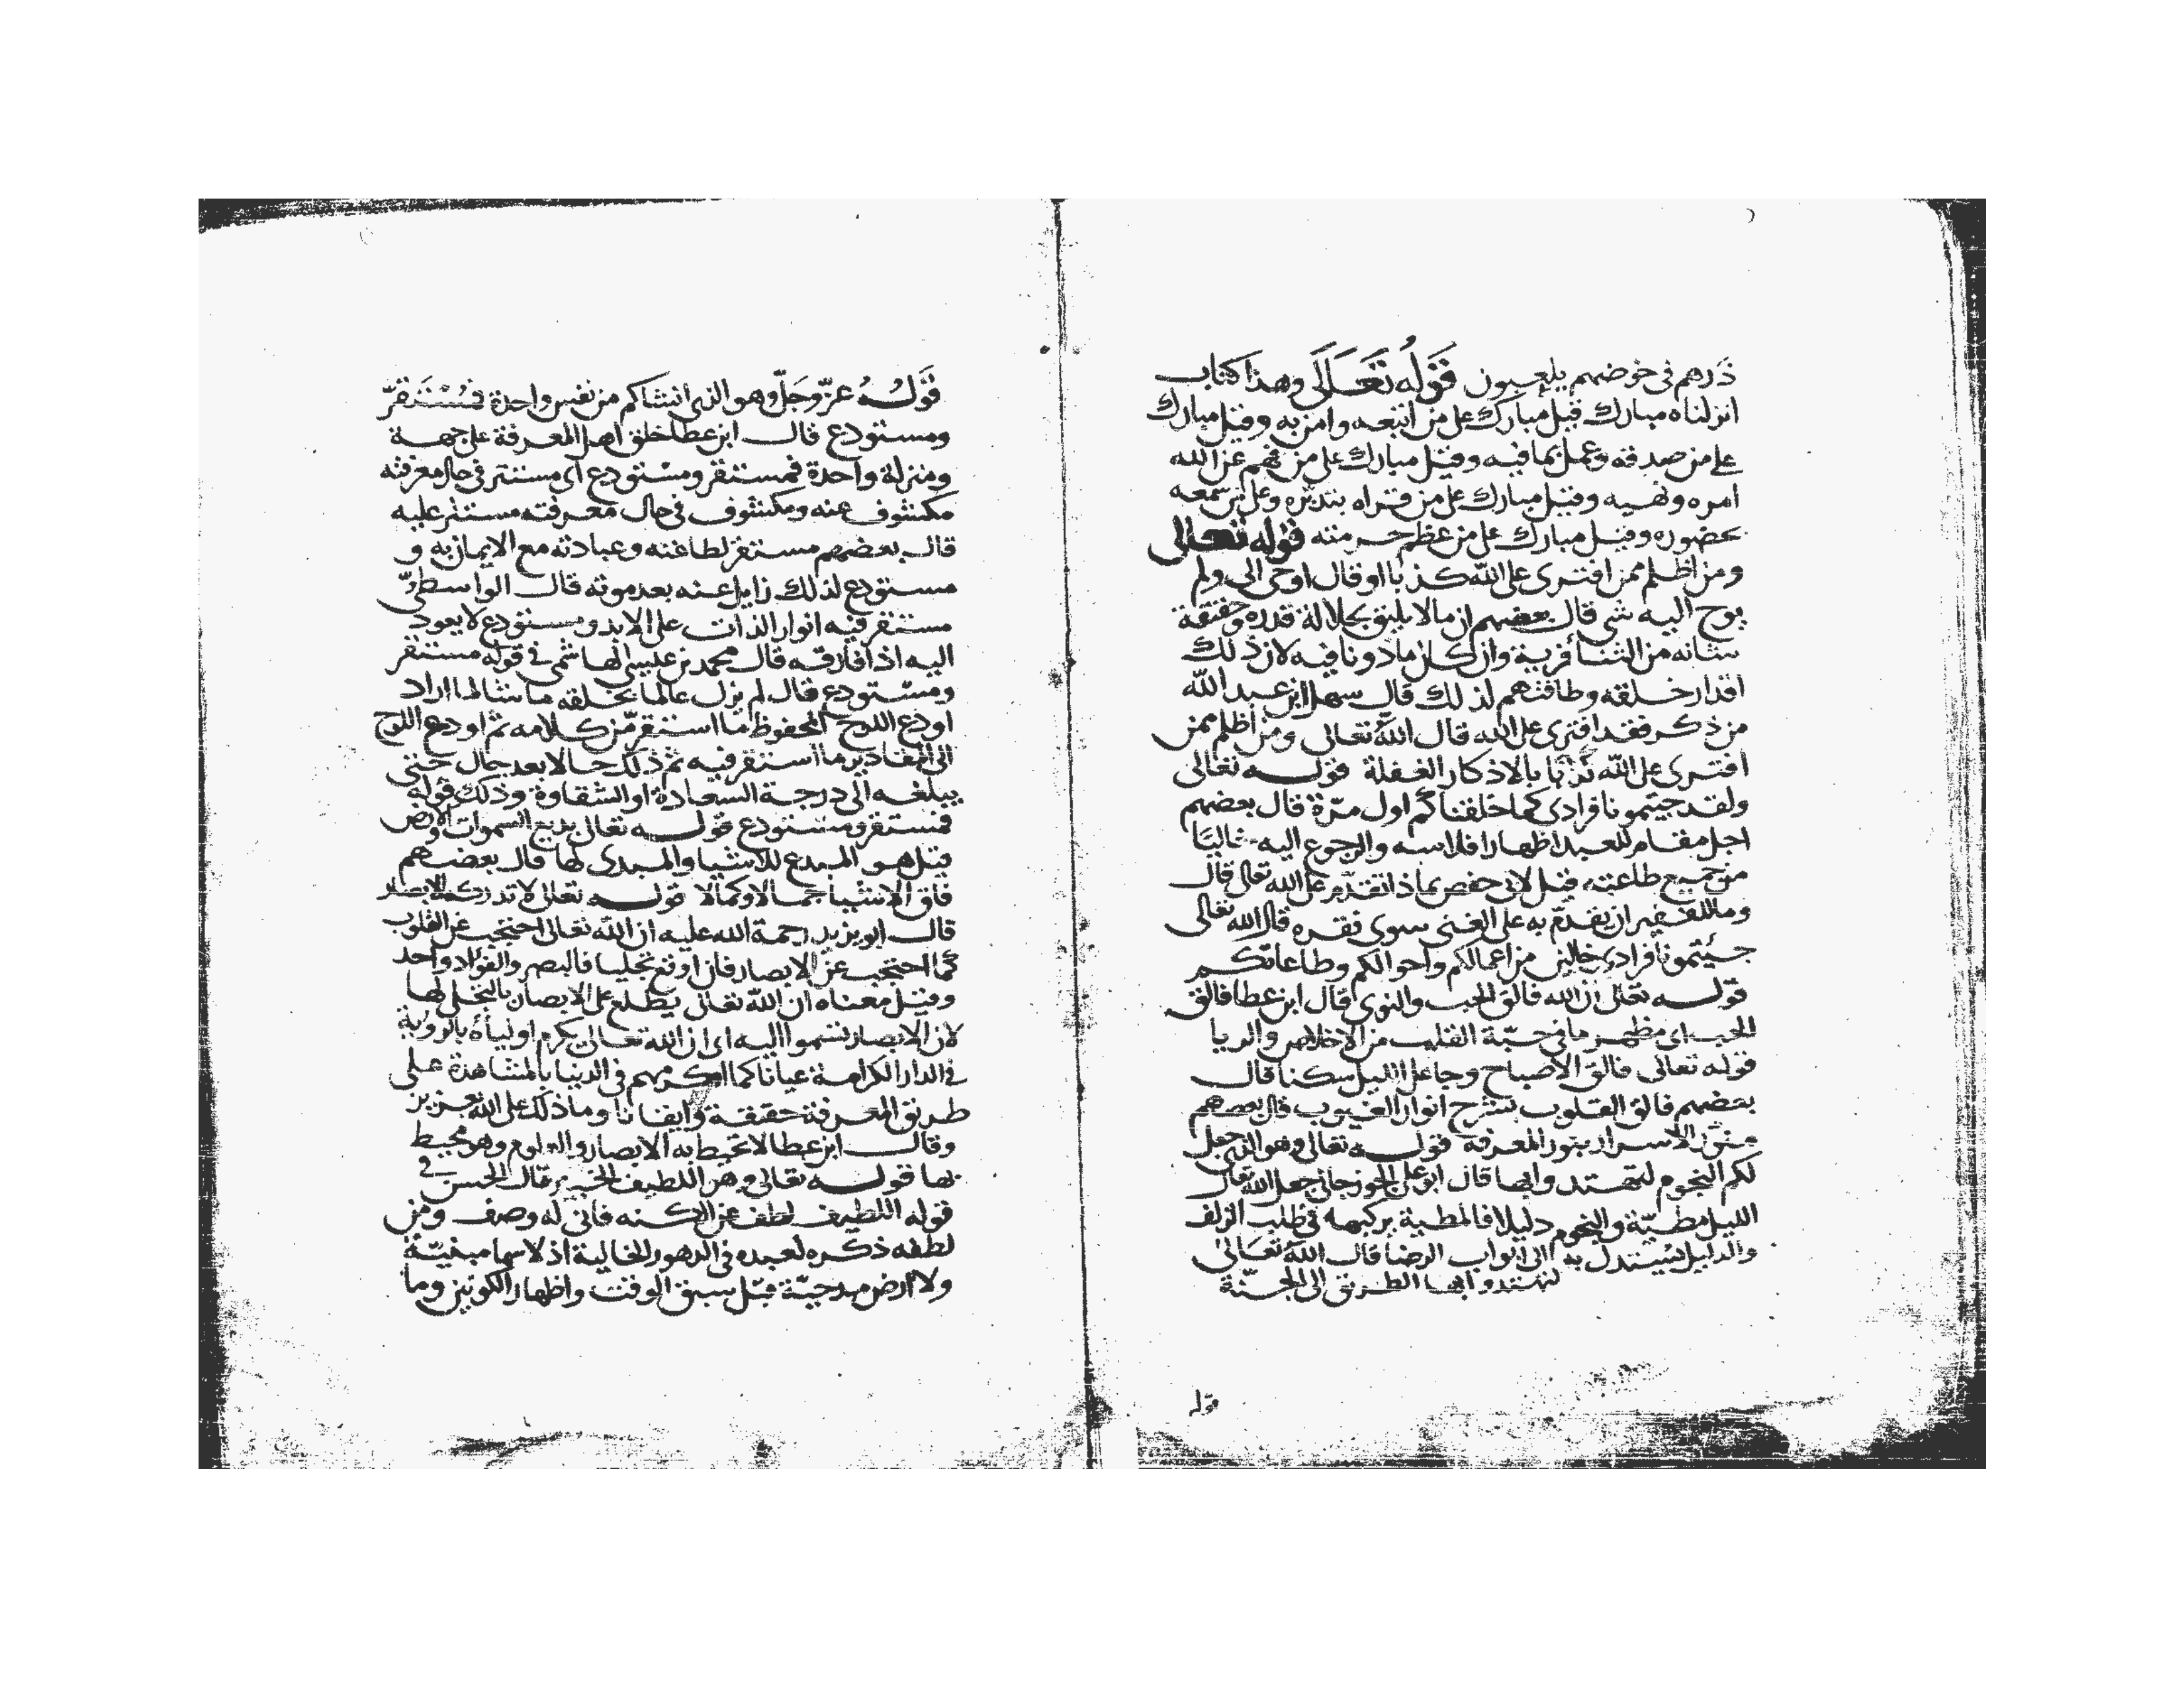 ذرهم في خوضهم يلعبون قوله تعالى وهذا كتاب
انزلناه مبارك قيل مبارك على من اتبعه وامن به وقيل مبارك
على من صدقه وعمل بما فيه وقيل مبارك على من فهم عن الله
امره ونهيه وقيل مبارك على من قراه بتدبره وعلى من سمعه
بحضوره وقيل مبارك على من عظم حرمته قوله تعالى
ومن اظلم ممن افترى على الله كذبا او قال اوحى الى ولم
يوح اليه شى قال بعضهم ان ما لا يليق بجلالة قدره وحقيقة
شانه من الثنا فرية وان كان مادونا فيه لان ذلك
اقدار خلقه وطاقتهم لذلك قال سهل ابن عبد الله
من ذكر فقد افترى على الله قال الله تعالى ومن اظلم ممن
افترى على الله كذبا بالاذكار الغفلة قوله تعالى
ولقد جيتمونا فرادى كما خلقناكم اول مرة قال بعضهم
اجل مقام للعبد اظهار افلاسه والرجوع اليه خاليا
من جميع طاعته قيل لابي حفص بماذا تقدم على الله تعالى قال
وما للفقير ان يقدم به على الغنى سوى فقره قال الله تعالى
جئيتمونا فرادى خالين من اعمالكم واحوالكم وطاعاتكم
قوله تعالى ان الله فالق الحب والنوى قال ابن عطا فالق
الحب اى مظهر ما في حبة القلب من الاخلاص والريا
قوله تعالى فالق الاصباح وجاعل الليل سكنا قال
بعضهم فالق القلوب بشرح انوار الغيوب قال بعضهم
الاسرار بنور المعرفة قوله تعالى وهو الذي جعل
لكم النجوم لتهتدوا بها قال ابو على الجوزجاني جعل الله تعالى
الليل مطية والنجوم دليلا فالمطية يركبها في طلب الزلف
والدليل يستدل به الى ابواب الرضا قال الله تعالى
لتهتدوا بها الطريق الى الجنة
قوله
قوله عز وجل وهو الذي انشاكم من نفس واحدة فمستقر
ومستودع قال ابن عطا خلق اهل المعرفة على جهة
ومنزلة واحدة فمستقر ومستودع اى مستتر في حال معرفته
مكشوف عنه ومكشوف في حال معرفته مستتر عليه
قال بعضهم مستقر لطاعته وعبادته مع الايمان به و
مستودع لذلك زايل عنه بعد موته قال الواسطي
مستقر فيه انوار الذات على الابد ومستودع لا يعود
اليه اذا فارقه قال محمد بن عيسى الهاشمي في قوله مستقر
ومستودع قال لم يزل عالما بخلقه ما شا لما اراد
اودع اللوح المحفوظ ما استقر من كلامه ثم اودع اللوح
الى المقادير ما استقر فيه ثم ذلك حالا بعد حال حتى
يبلغه الى درجة السعادة او الشقاوة وذلك قوله
فمستقر ومستودع قوله تعالى بديع السموات والارض
قيل هو المبدع للاشيا والمبدى لها قال بعضهم
فاق الاشيا جمالا وكمالا قوله تعالى لا تدركه الابصار
قال ابو يزيد رحمة الله عليه ان الله تعالى احتجب عن القلوب
كما احتجب عن الابصار فان اوقع تجليا فالبصر والفؤاد واحد
وقيل معناه ان الله تعالى يطلع على الابصار بالتجلي لها
لان الابصار تسموا اليه اى ان الله تعالى يكرم اوليأه بالروية
في الدار الكرامة عيانا كما اكرمهم في الدنيا بالمشاهدة على
طريق المعرفة حقيقة وايقانا وما ذلك على الله بعزيز
وقال ابن عطا لا تحيط به الابصار والعلوم وهو محيط
بها قوله تعالى وهو اللطيف الخبير قال الحسن في
قوله اللطيف لطف عن الكنه فانى له وصف ومن
لطفه ذكره لعبده في الدهور الخالية اذ لا سما مبنية
ولا ارض مدحية قبل سبق الوقت واظهار الكونين وما